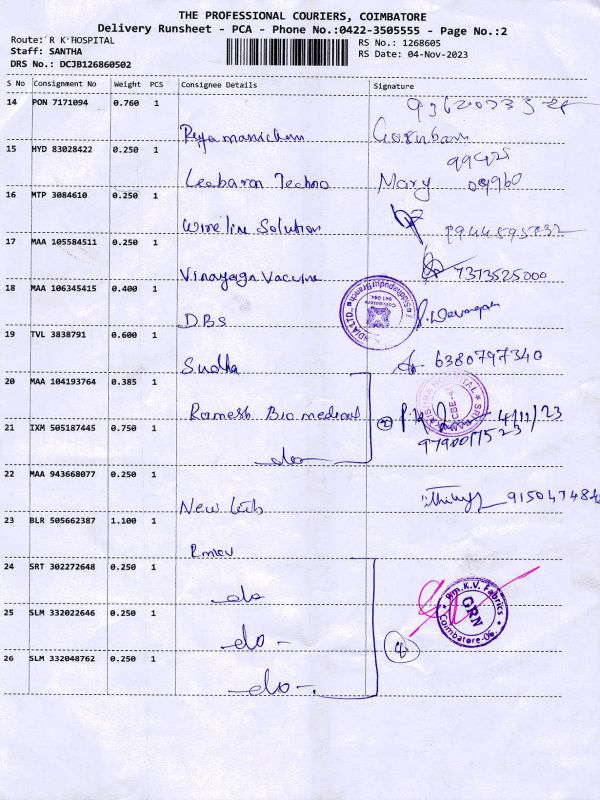 THE PROFESSIONAL COURIERS, COIMBATORE
Delivery Runsheet - PCA - Phone No.:0422-3505555 - Page No.:2
Route: R K HOSPITAL RS No.: 1268605
Staff: SANTHA RS Date: 04-Nov-2023
DRS No.: DCJB126860502
S No Consignment No Weight PCS Consignee Details Signature
14 PON 7171094 0.760 1
15 HYD 83028422 0.250 1
Techno Mary
16 MTP 3084610 0.250 1
Wireline Solution
17 MAA 105584511 0.250 1
Vinayaga Vaccine 7373525000
18 MAA 106345415 0.400 1
DBS
19 TVL 3838791 0.600 1
Sudha 6380797340
20 MAA 104193764 0.385 1
Ramesh Bio medical 4/11/23
21 IXM 505187445 0.750 1
do
22 MAA 943668077 0.250 1
New
23 BLR 505662387 1.100 1
24 SRT 302272648 0.250 1
do
Rm.K.V. Fabrics
GRN
25 SLM 332022646 0.250 1
do -
4
26 SLM 332048762 0.250 1
do -.